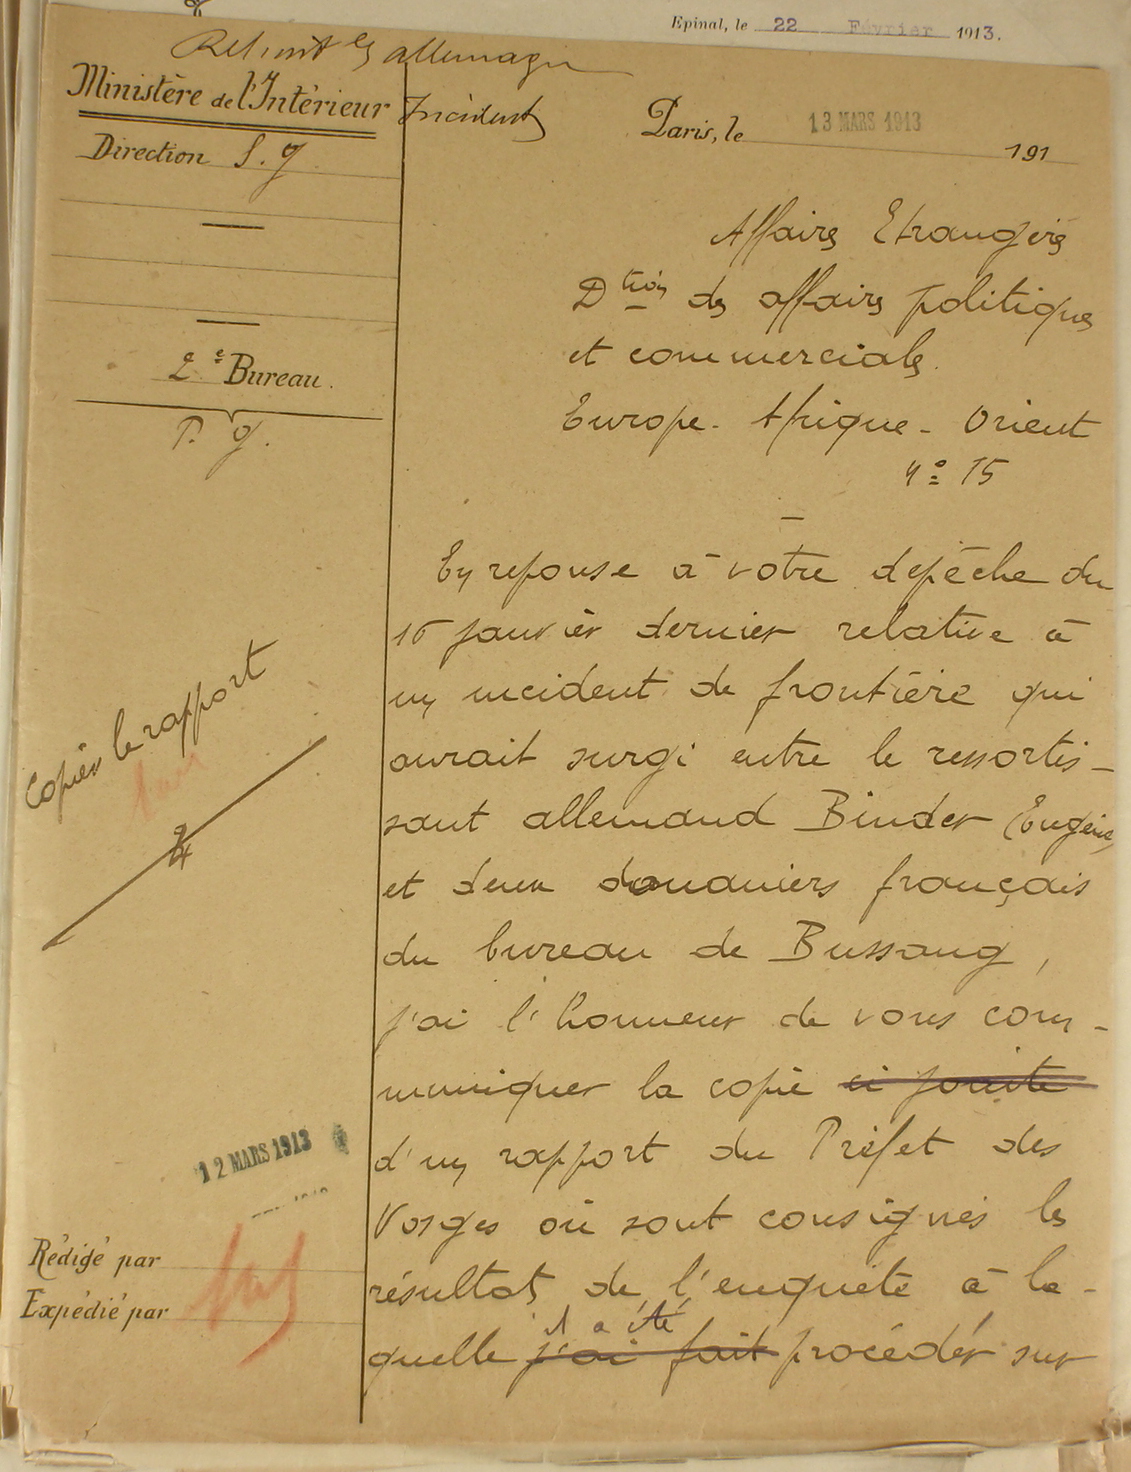 Epinal, le 22 Février 1913.
allemagne
Ministère de l'Intérieur
Incidents
Direction S. g
Paris, le 13 MARS 1913 191
2e Bureau.
P. g.
Affaires Etrangères
Dtion des affaires politiques
et commerciales.
Europe - Afrique - Orient
nº 15
En reponse à votre dépêche du
16 janvier dernier relative à
un incident de frontière qui
aurait surgi entre le ressortis-
sant allemand Binder (Eugène)
et deux douaniers français
du bureau de Bussang,
j'ai l'honneur de vous com-
muniquer la copie ci jointe
d'un rapport du Préfet des
Vosges où sont consignés les
résultats de l'enquête à la-
il a été
quelle j'ai fait procéder sur
Copier le rapport
12 MARS 1913
Rédigé par
Expédié par